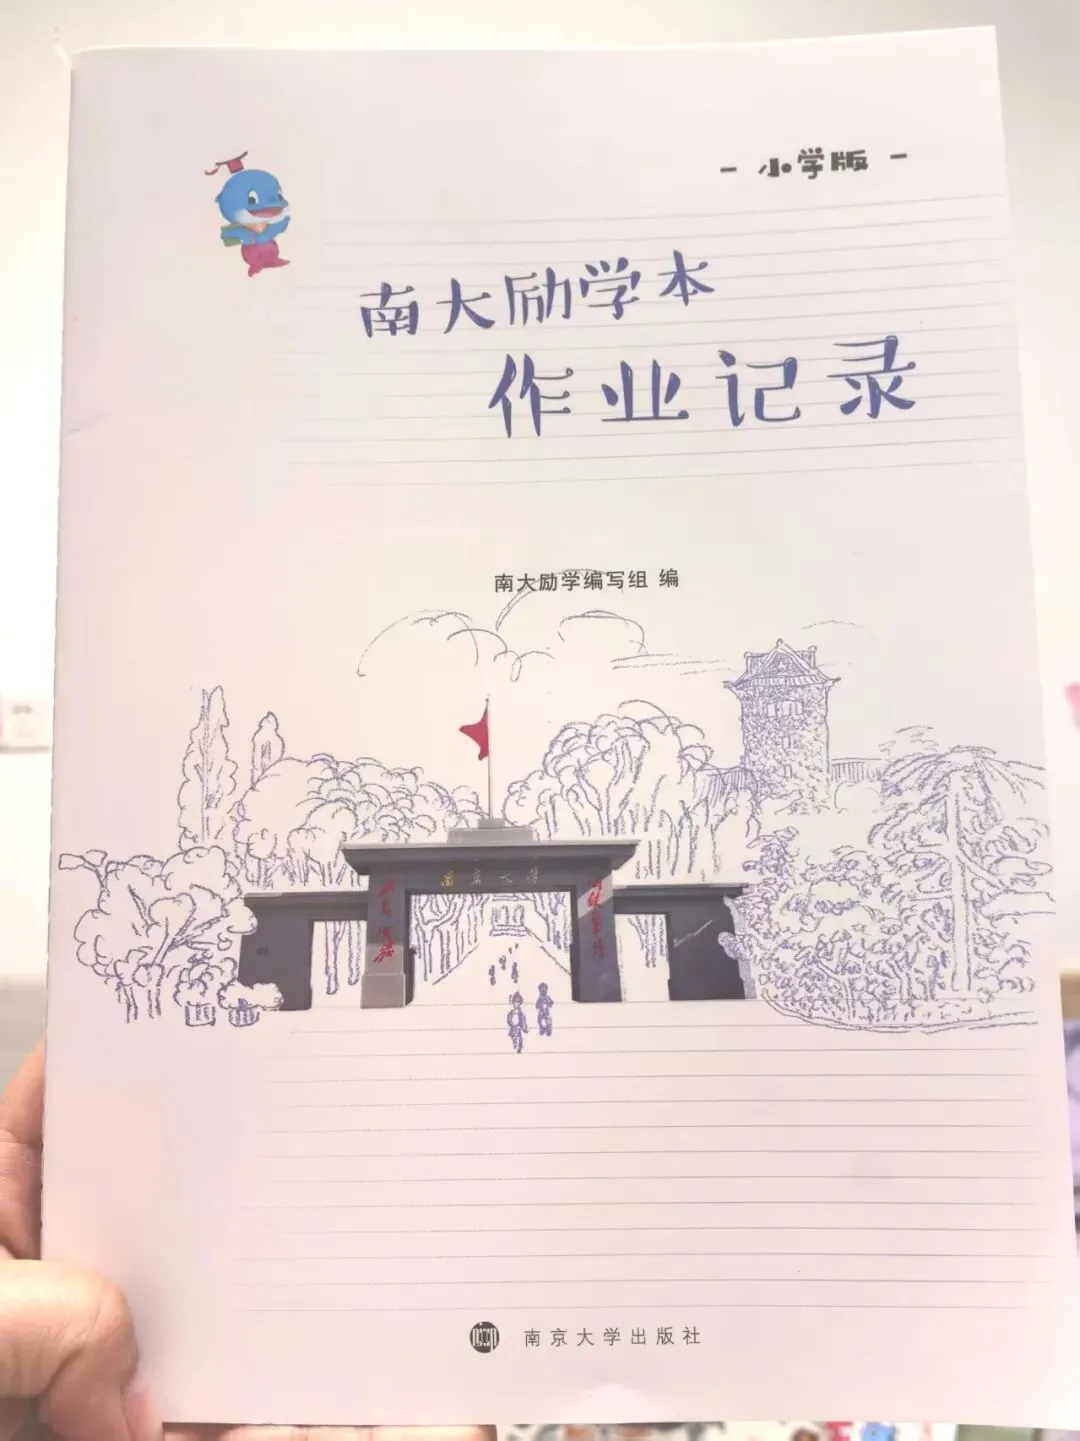 - 小学版 -
南大励学本
作业记录
南大励学编写组 编
南京大学
南京大学出版社